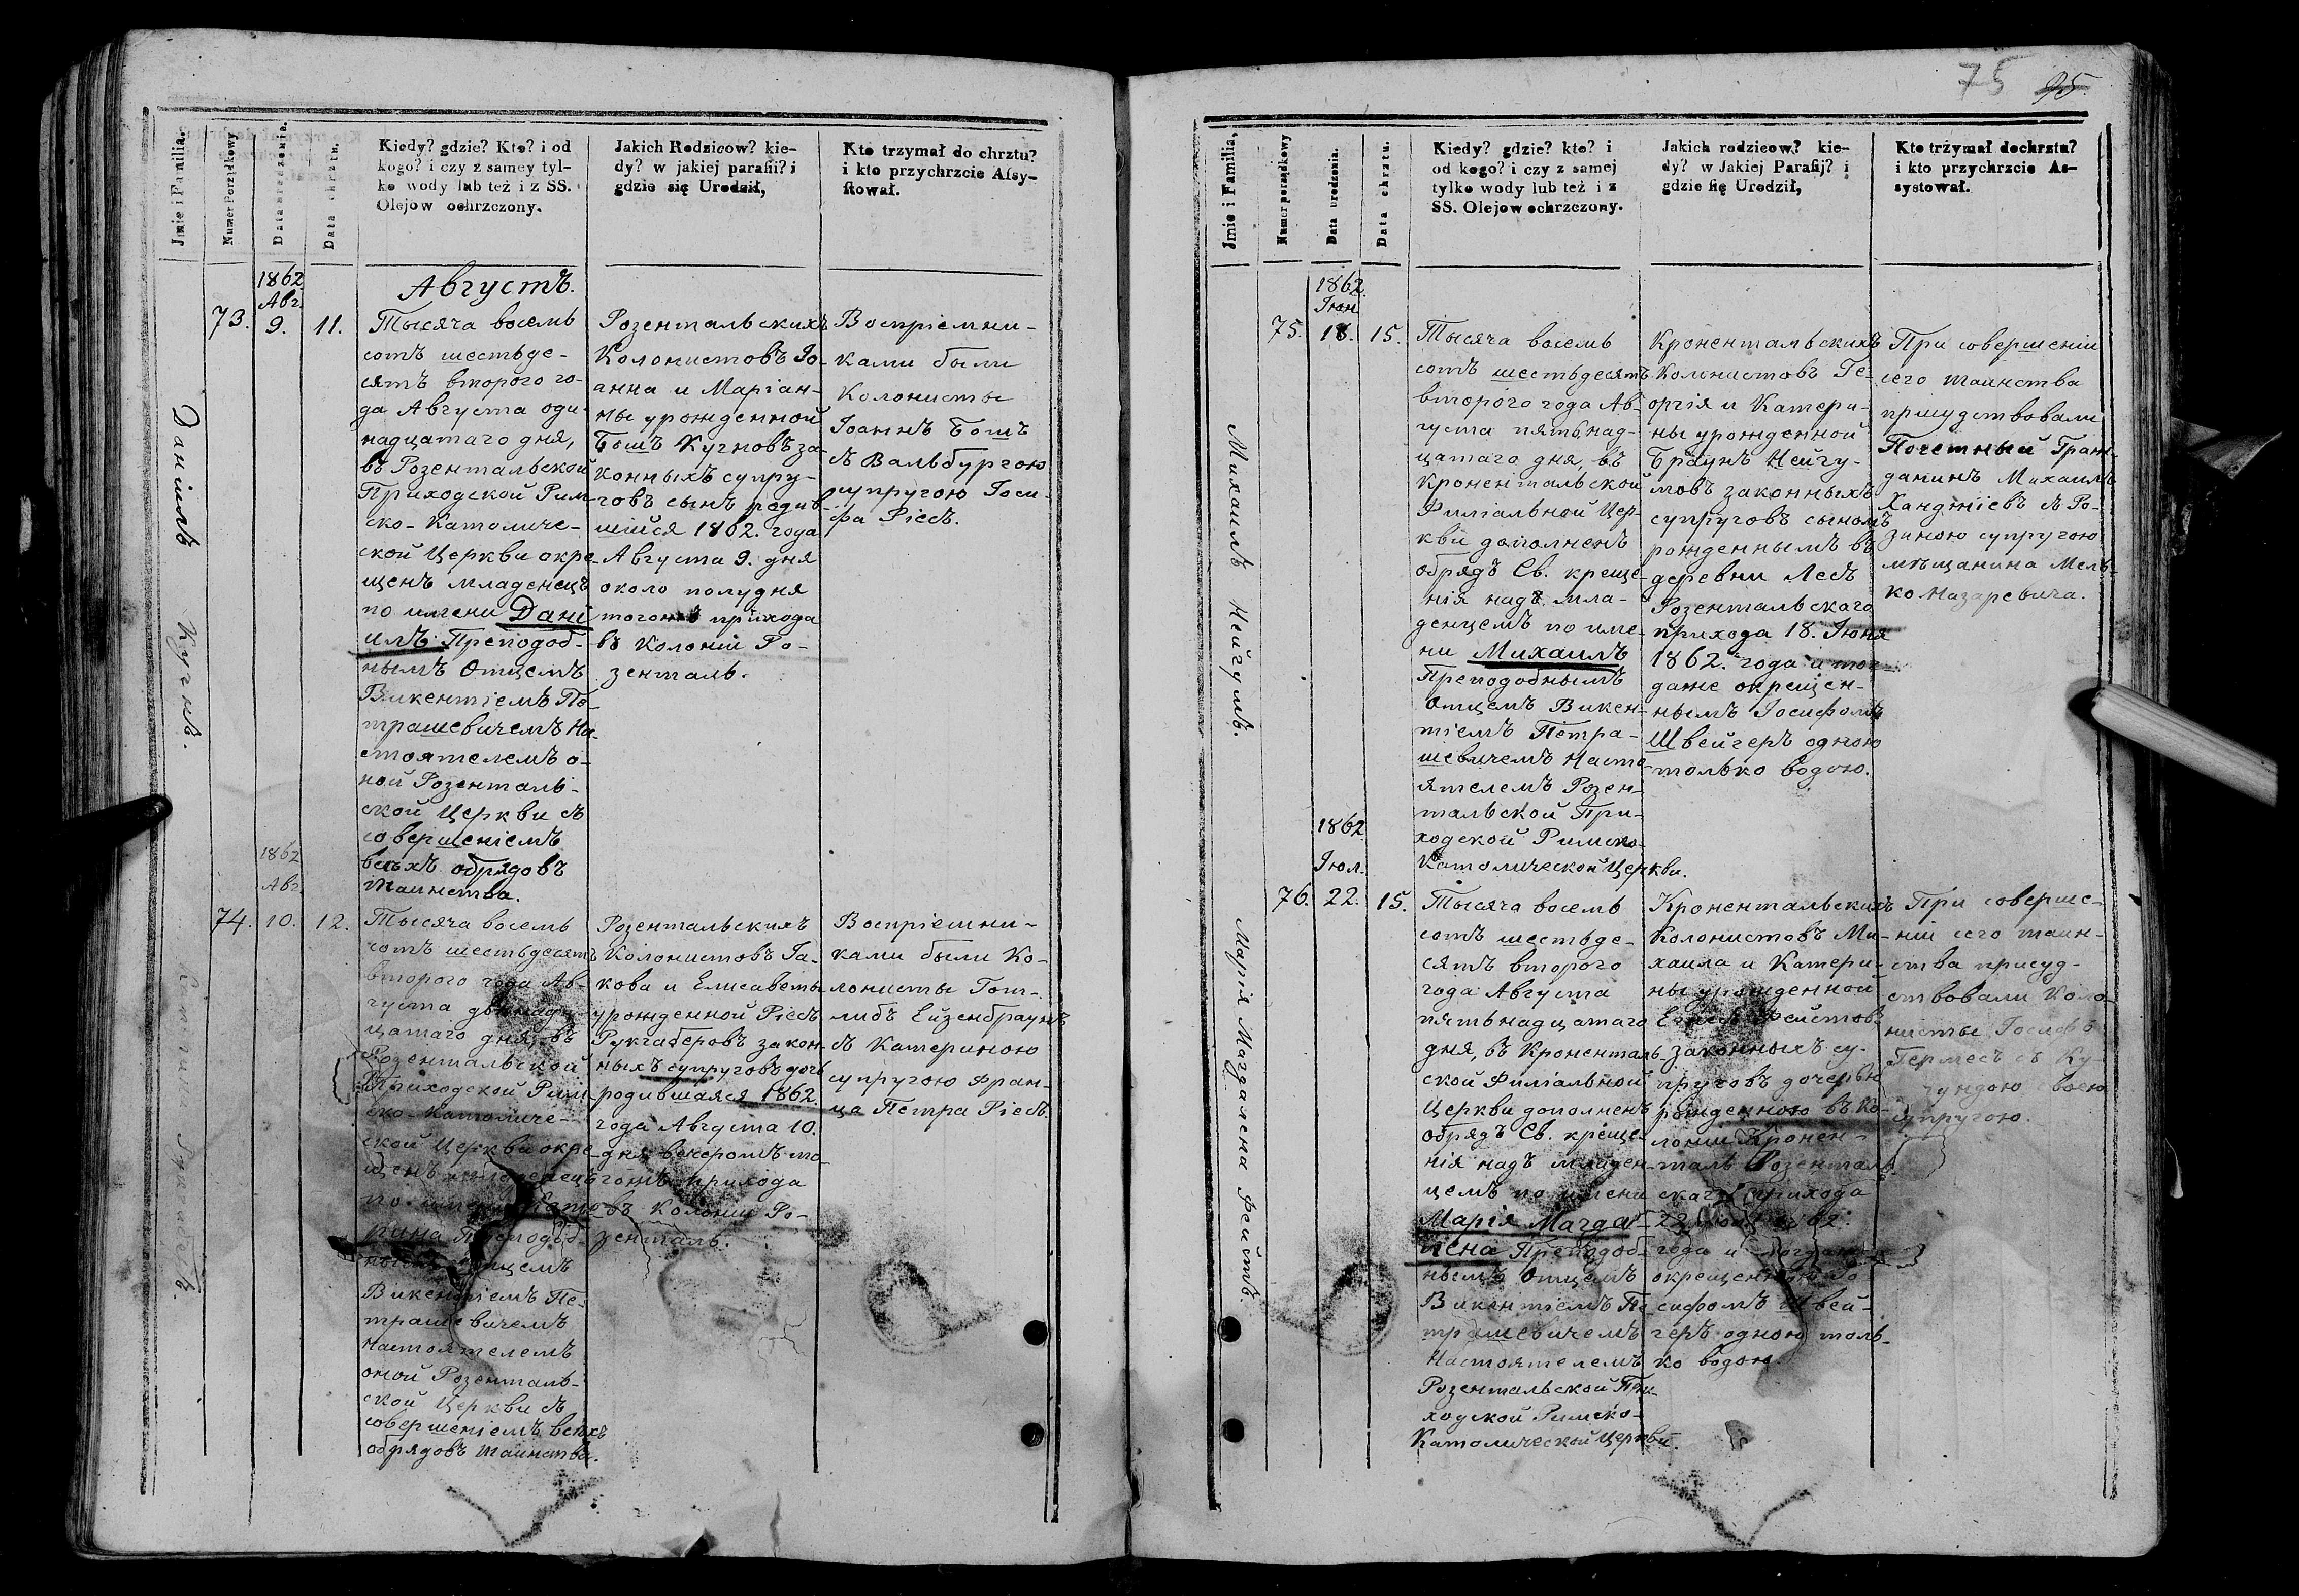 75 95.
Jmie i Familia.
Numer Porządkowy
Data urodzenia.
Data chrztu.
Kiedy? gdzie? Kto? i od
kogo? i czy z samey tyl-
ko wody lub też i z SS.
Olejow ochrzczony.
Jakich Rodzicow? kie-
dy? w jakiej parafii? i
gdzie się Urodził,
Kto trzymał do chrztu?
i kto przychrzcie Afsy-
stował.
Даніилъ Кугнъ.
1862
Авг.
73. 9. 11.
Августъ.
Тысяча восемь
сотъ шестьде-
сятъ второго го-
да Августа оди-
надцатаго дня,
въ Розентальской
Приходской Рим-
ско-Католиче-
ской Церкви окре-
щенъ младенецъ
по имени Дані
илъ Преподоб-
нымъ Отцемъ
Викентіемъ Пе-
трашевичемъ На-
стоятелемъ о-
ной Розенталь-
ской Церкви съ
совершеніемъ
всѣхъ обрядовъ
таинства.
Розентальскихъ
Колонистовъ Іо-
анна и Маріан-
ны урожденной
Бошъ Кугновъ за-
конныхъ супру-
говъ сынъ родив-
шійся 1862. года
Августа 9. дня
около полудня
тогожъ прихода
въ Колоніи Ро-
зенталь.
Воспріемни-
ками были
Колонисты
Іоаннъ Бошъ
съ Вальбургою
супругою Іоси-
фа Рісбъ.
1862
Авг.
74. 10. 12.
Тысяча восемь
сотъ шестьдесятъ
второго года Ав-
густа двѣнад-
цатаго дня, въ
Розентальской
Приходской Рим-
ско-Католиче-
ской Церкви окре-
щенъ
по имени Кате-
рина Преподоб-
нымъ Отцемъ
Викентіемъ Пе-
трашевичемъ
Настоятелемъ
оной Розенталь-
ской Церкви съ
совершеніемъ всѣхъ
обрядовъ таинства.
Розентальскихъ
Колонистовъ Іа-
кова и Елисаветы
урожденной Рісбъ
Рукгаберовъ закон-
ныхъ супруговъ дочь
родившаяся 1862.
года Августа 10.
дня вечеромъ то-
гожъ прихода
въ Колоніи Ро-
зенталь.
Воспріемни-
ками были Ко-
лонисты Гот-
либъ Ейзенбраунъ
съ Катериною
супругою Фран-
ца Петра Рісбъ.
Jmie i Familia.
Numer porządkowy
Data urodzenia.
Data chrztu.
Kiedy? gdzie? kto? i
od kogo? i czy z samej
tylko wody lub też i z
SS. Olejow ochrzczony.
Jakich rodzicow? kie-
dy? w Jakiej Parafij? i
gdzie się Urodził,
Kto trżymał dochrztu?
i kto przychrzcie As-
systował.
Михаилъ Нейгумъ.
1862
Іюн.
75. 18. 15.
Тысяча восемь
сотъ шестьдесятъ
второго года Ав-
густа пятьнад-
цатаго дня, въ
Кронентальской
Филіальной Цер-
кви дополненъ
обрядъ Св. креще-
нія надъ мла-
денцемъ по име-
ни Михаилъ
Преподобнымъ
Отцемъ Викен-
тіемъ Петра-
шевичемъ Насто-
ятелемъ Розен-
тальской При-
ходской Римско-
Католической Церкви.
Кронентальскихъ
Колонистовъ Ге-
оргія и Катери-
ны урожденной
Браунъ Нейгу-
мовъ законныхъ
супруговъ сыномъ
рожденнымъ въ
деревни Лебъ
Розентальскаго
прихода 18. Іюня
1862. года и тог-
даже окрещен-
нымъ Іосифомъ
Швейгеръ одною
только водою.
При совершеніи
сего таинства
присудствовали
Почетный Граж-
данинъ Михаилъ
Ханджіевъ съ Ро-
зиною супругою
мѣщанина Мель-
ко Назаревича.
Марія Магдалена Фейстъ.
1862
Іюл.
76. 22. 15.
Тысяча восемь
сотъ шестьде-
сятъ второго
года Августа
пятьнадцатаго
дня, въ Кроненталь-
ской Филіальной
Церкви дополненъ
обрядъ Св. креще-
нія надъ младен-
цемъ по имени
Марія Магда-
лена Преподоб-
нымъ Отцемъ
Викентіемъ Пе-
трашевичемъ
Настоятелемъ
Розентальской При-
ходской Римско-
Католической Церкви.
Кронентальскихъ
Колонистовъ Ми-
хаила и Катери-
ны урожденной
Фейстовъ
законныхъ су-
пруговъ дочерью
рожденною въ Ко-
лоніи Кронен-
таль Розенталь-
скаго прихода
22 1862.
года и тогдаже
окрещенною Іо-
сифомъ Швей-
геръ одною толь-
ко водою.
При соверше-
ніи сего таин-
ства присуд-
ствовали Коло-
нисты Іосифъ
Гермесъ съ Ку-
гундою своею
супругою.